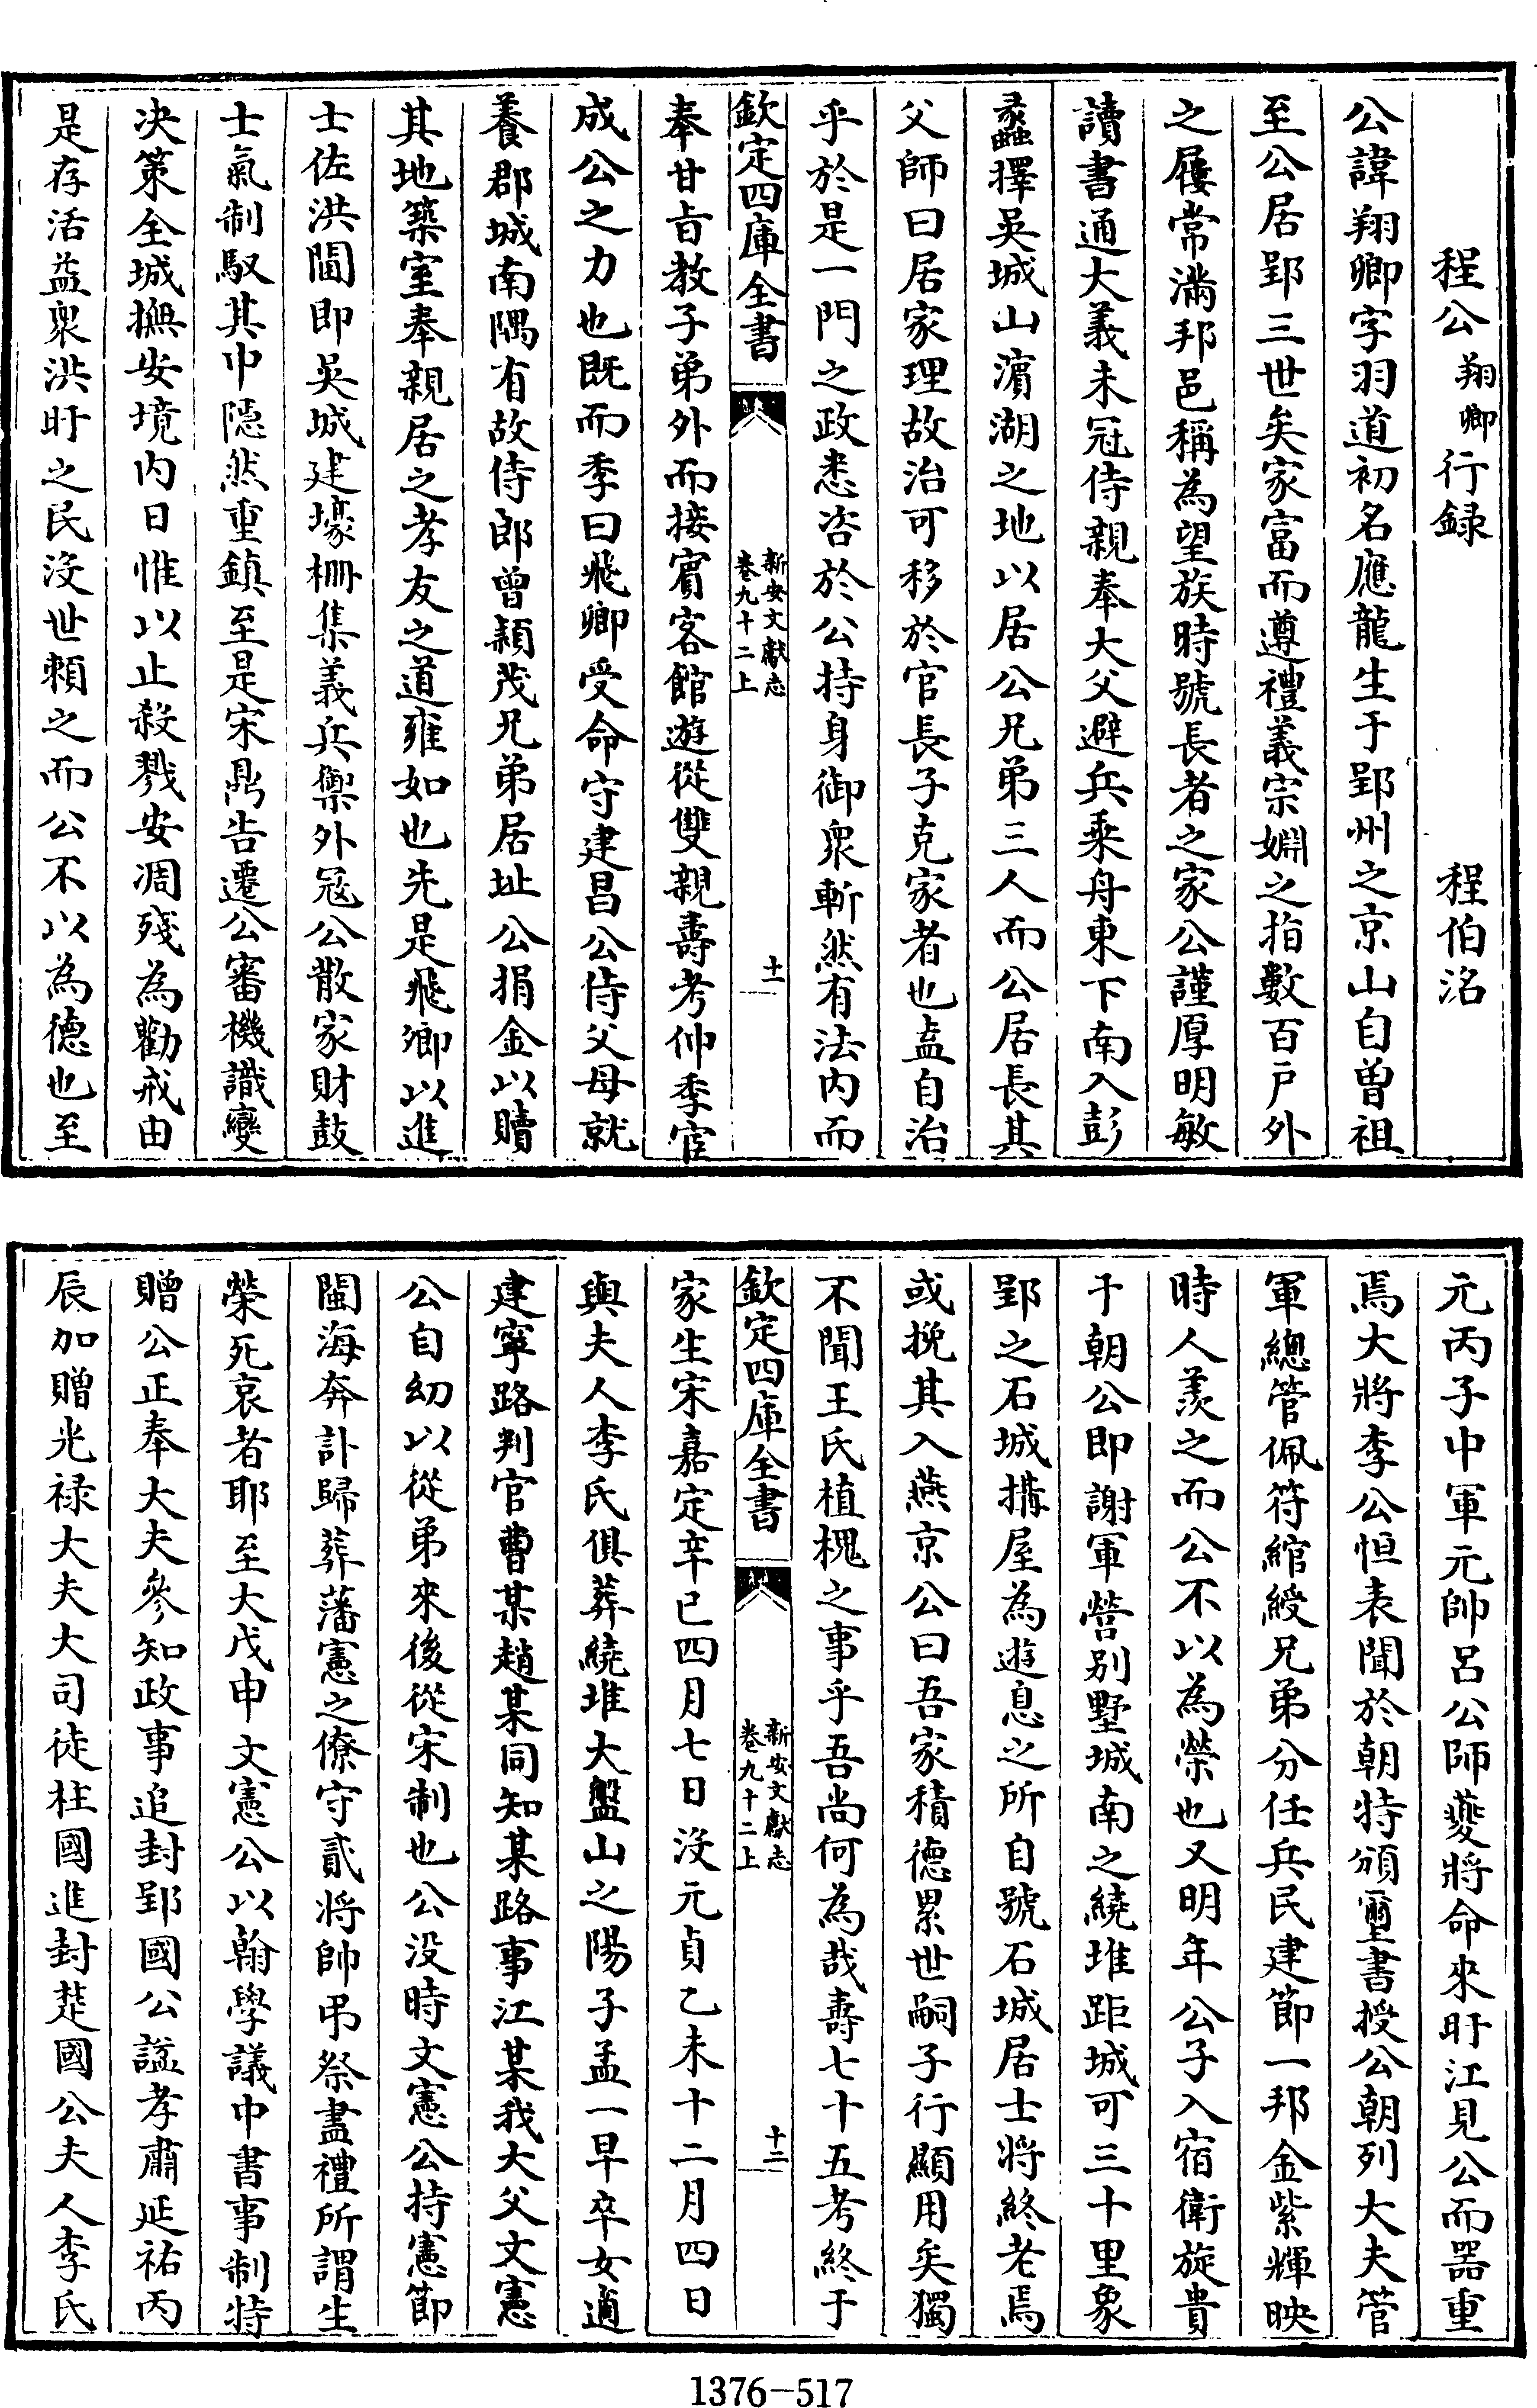 程公翔卿行録　程伯洺
公諱翔卿字羽道初名應龍生于郢州之京山自曽祖
至公居郢三世矣家富而遵禮義宗婣之指數百户外
之屨常滿邦邑稱為望族時號長者之家公謹厚明敏
讀書通大義未冠侍親奉大父避兵乗舟東下南入彭
蠡擇吳城山濵湖之地以居公兄弟三人而公居長其
父師曰居家理故治可移於官長子克家者也盍自治
乎於是一門之政悉咨於公持身御衆斬然有法内而
欽定四庫全書
新安文獻志
卷九十二上
十一
奉甘㫖教子弟外而接賔客館遊從雙親壽考仲季宦
成公之力也既而季曰飛卿受命守建昌公侍父母就
養郡城南隅有故侍郎曾穎茂兄弟居址公捐金以贖
其地築室奉親居之孝友之道雍如也先是飛卿以進
士佐洪閫即吳城建壕栅集義兵禦外冦公散家財鼓
士氣制馭其中隱然重鎮至是宋鼎告遷公審機識變
决策全城撫安境内日惟以止殺戮安凋殘為勸戒由
是存活益衆洪盱之民没世頼之而公不以為德也至
元丙子中軍元帥呂公師夔將命來盱江見公而器重
焉大將李公恒表聞於朝特頒璽書授公朝列大夫管
軍總管佩符綰綬兄弟分任兵民建節一邦金紫輝映
時人羨之而公不以為榮也又明年公子入宿衛旋貴
于朝公即謝軍營别墅城南之繞堆距城可三十里象
郢之石城搆屋為遊息之所自號石城居士將終老焉
或挽其入燕京公曰吾家積德累世嗣子行顯用矣獨
不聞王氏植槐之事乎吾尚何為哉壽七十五考終于
欽定四庫全書
新安文獻志
卷九十二上
十二
家生宋嘉定辛巳四月七日没元貞乙未十二月四日
與夫人李氏俱葬繞堆大盤山之陽子孟一早卒女適
建寧路判官曹某趙某同知某路事江某我大父文憲
公自幼以從弟來後從宋制也公没時文憲公持憲節
閩海奔訃歸葬藩憲之僚守貳將帥弔祭盡禮所謂生
榮死哀者耶至大戊申文憲公以翰學議中書事制特
贈公正奉大夫參知政事追封郢國公諡孝肅延祐丙
辰加贈光禄大夫大司徒柱國進封楚國公夫人李氏
1376-517